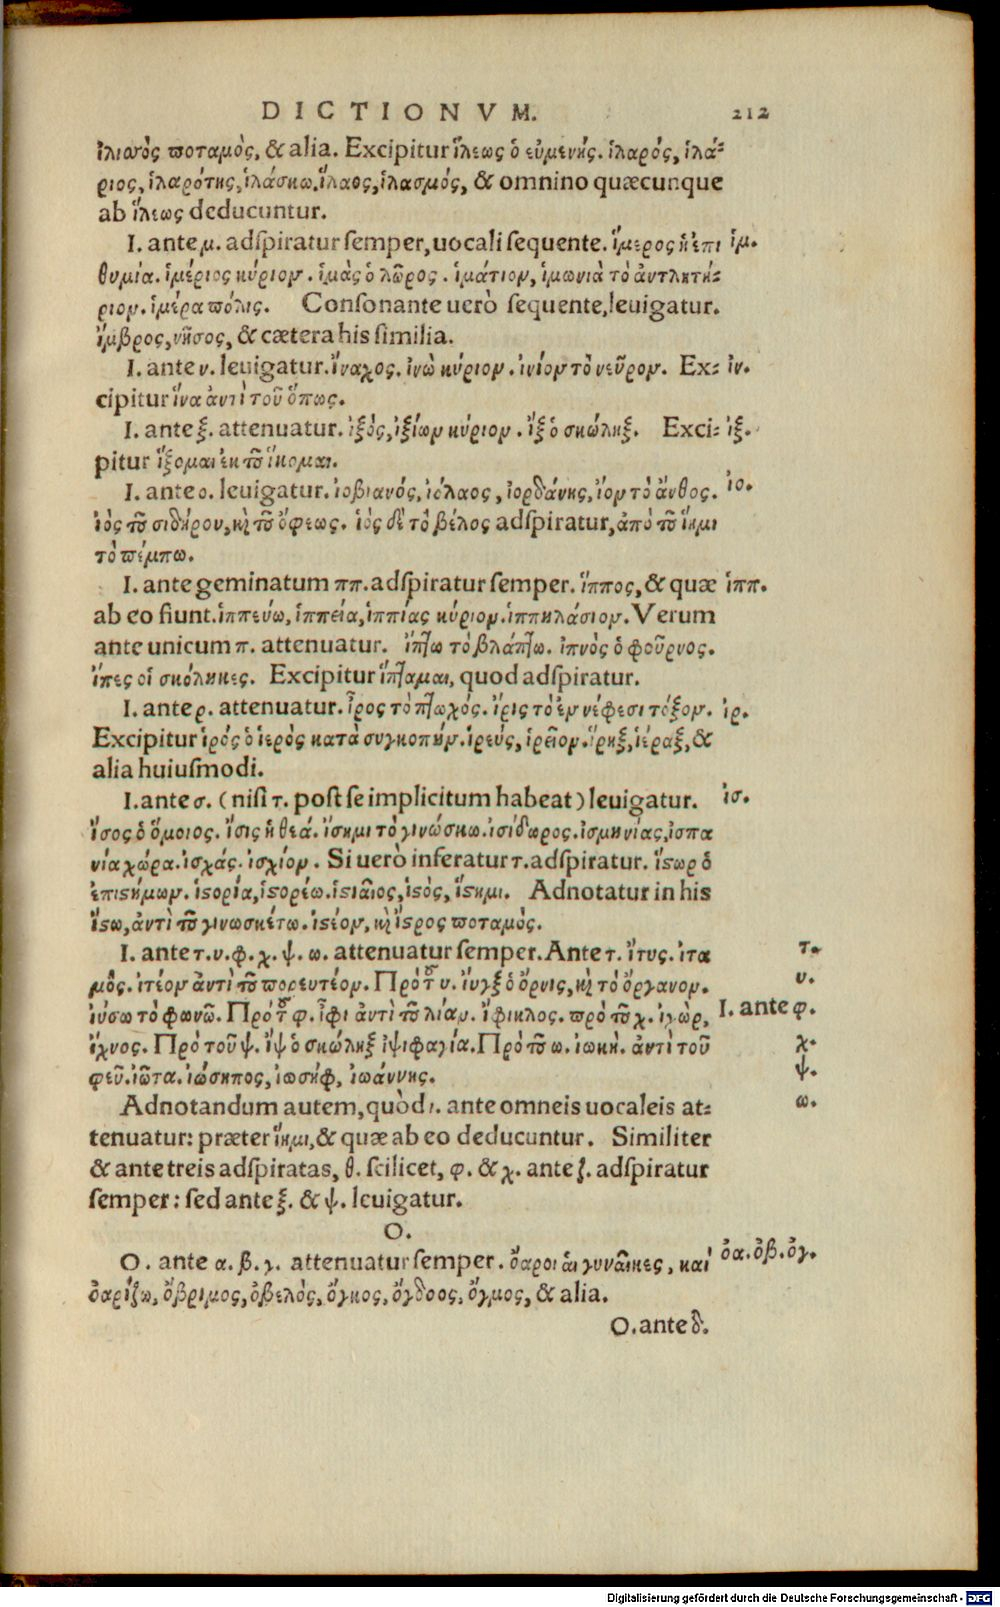 DICTIONVM. 212
ἰλισσὸς ποταμὸς, & alia. Excipitur ἵλεως ὁ εὐμενής. ἱλαρός, ἱλά⸗
ριος, ἱλαρότης, ἱλάσκω. ἵλαος, ἱλασμός, & omnino quæcunque
ab ἵλεως deducuntur.
I. ante μ. adſpiratur ſemper, uocali ſequente. ἵμερος ἡ ἐπι ἱμ.
θυμία. ἱμέριος κύριον. ἱμὰς ὁ λῶρος. ἱμάτιον, ἱμωνιὰ τὸ ἀντλητή⸗
ριον. ἱμέρα πόλις. Conſonante uerò ſequente, leuigatur.
ἴμβρος, νῆσος, & cætera his ſimilia.
I. ante ν. leuigatur. ἴναχος. ἰνὼ κύριον. ἰνίον τὸ νεῦρον. Ex⸗ ἰν.
cipitur ἵνα ἀντὶ τοῦ ὅπως.
I. ante ξ. attenuatur. ἰξὸς, ἰξίων κύριον. ἴξ ὁ σκώληξ. Exci⸗ ἰξ.
pitur ἵξομαι ἐκ τοῦ ἵκομαι.
I. ante ο. leuigatur. ἰοβιανός, ἰόλαος, ἰορδάνης, ἴον τὸ ἄνθος. ἰο.
ἰὸς τοῦ σιδήρου, καὶ τοῦ ὄφεως. ἱὸς δὲ τὸ βέλος adſpiratur, ἀπὸ τοῦ ἵημι
τὸ πέμπω.
I. ante geminatum ππ. adſpiratur ſemper. ἵππος, & quæ ἱππ.
ab eo fiunt. ἱππεύω, ἱππεία, ἱππίας κύριον. ἱππηλάσιον. Verum
ante unicum π. attenuatur. ἴπτω τὸ βλάπτω. ἰπνὸς ὁ φοῦρνος.
ἴπες οἱ σκόληκες. Excipitur ἵπταμαι, quod adſpiratur.
I. ante ρ. attenuatur. ἶρος τὸ πτωχός. ἴρις τὸ ἐν νέφεσι τόξον. ἰρ.
Excipitur ἱρὸς ὁ ἱερὸς κατὰ συγκοπήν. ἱρεύς, ἱρεῖον. ἵρηξ, ἱέραξ, &
alia huiuſmodi.
I. ante σ. (niſi τ. poſt ſe implicitum habeat) leuigatur. ἰσ.
ἴσος ὁ ὅμοιος. ἴσις ἡ θεά. ἴσημι τὸ γινώσκω. ἰσίδωρος. ἰσμηνίας, ἰσπα
νία χώρα. ἰσχάς. ἰσχίον. Si uerò inferatur τ. adſpiratur. ἵστωρ ὁ
ἐπιστήμων. ἱστορία, ἱστορέω. ἱστιαῖος, ἱστὸς, ἵστημι. Adnotatur in his
ἴστω, ἀντὶ τοῦ γινωσκέτω. ἰστέον, καὶ ἴστρος ποταμὸς.
I. ante τ. υ. φ. χ. ψ. ω. attenuatur ſemper. Ante τ. ἴτυς. ἰτα τ.
μὸς. ἰτέον ἀντὶ τοῦ πορευτέον. Πρὸ τοῦ υ. ἴυγξ ὁ ὄρνις, καὶ τὸ ὄργανον. υ.
ἰύσω τὸ φωνῶ. Πρὸ τοῦ φ. ἶφι ἀντὶ τοῦ λίαν. ἴφικλος. πρὸ τοῦ χ. ἰχὼρ, I. ante φ.
ἴχνος. Πρὸ τοῦ ψ. ἴψ ὁ σκώληξ ἰψιφαγία. Πρὸ τοῦ ω. ἰωκή. ἀντὶ τοῦ χ.
φεῦ. ἰῶτα. ἰώσηπος, ἰωσὴφ, ἰωάννης. ψ.
Adnotandum autem, quòd ι. ante omneis uocaleis at⸗ ω.
tenuatur: præter ἵημι, & quæ ab eo deducuntur. Similiter
& ante treis adſpiratas, θ. ſcilicet, φ. & χ. ante ζ. adſpiratur
ſemper: ſed ante ξ. & ψ. leuigatur.
O.
O. ante α. β. γ. attenuatur ſemper. ὄαροι αἱ γυναῖκες, καὶ ὀα. ὀβ. ὀγ.
ὀαρίζω, ὄβριμος, ὀβελὸς, ὄγκος, ὄγδοος, ὄγμος, & alia.
O. ante δ.
Digitalisierung gefördert durch die Deutsche Forschungsgemeinschaft - DFG